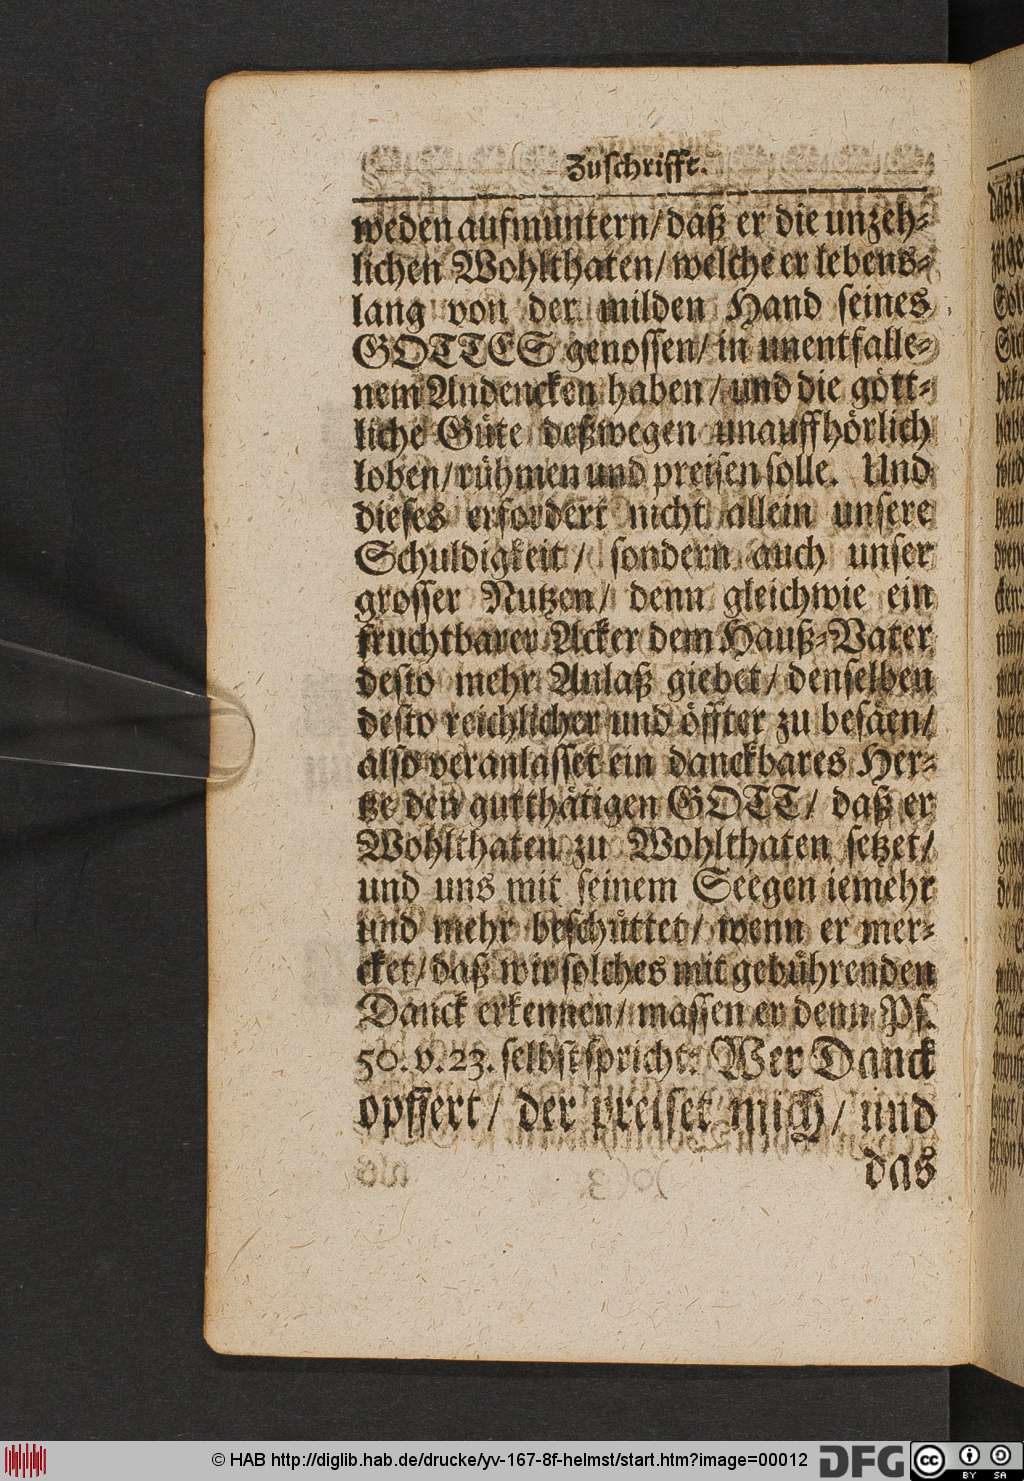 Zuschrifft.
weden aufmuntern/ daß er die unzeh-
lichen Wohlthaten/ welche er lebens-
lang von der milden Hand seines
GOTTES genossen/ in unentfalle-
nem Andencken haben/ und die gött-
liche Güte deßwegen unauffhörlich
loben/ rühmen und preisen solle. Und
dieses erfordert nicht allein unsere
Schuldigkeit/ sondern auch unser
grosser Nutzen/ denn gleichwie ein
fruchtbarer Acker dem Hauß-Vater
desto mehr Anlaß giebet/ denselben
desto reichlicher und öffter zu besäen/
also veranlasset ein danckbares Her-
tze den gutthätigen GOTT/ daß er
Wohlthaten zu Wohlthaten setzet/
und uns mit seinem Seegen iemehr
und mehr beschüttet/ wenn er mer-
cket/ daß wir solches mit gebührenden
Danck erkennen/ massen er denn Ps.
50. v. 23. selbst spricht: Wer Danck
opffert/ der preiset mich/ und
das
© HAB http://diglib.hab.de/drucke/yv-167-8f-helmst/start.htm?image=00012
DFG
cc
BY SA